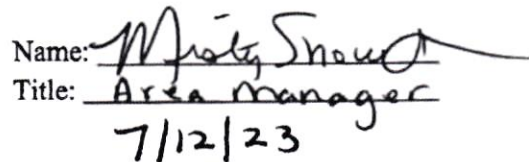 Name: Misty Snow
Title: Area Manager
7/12/23